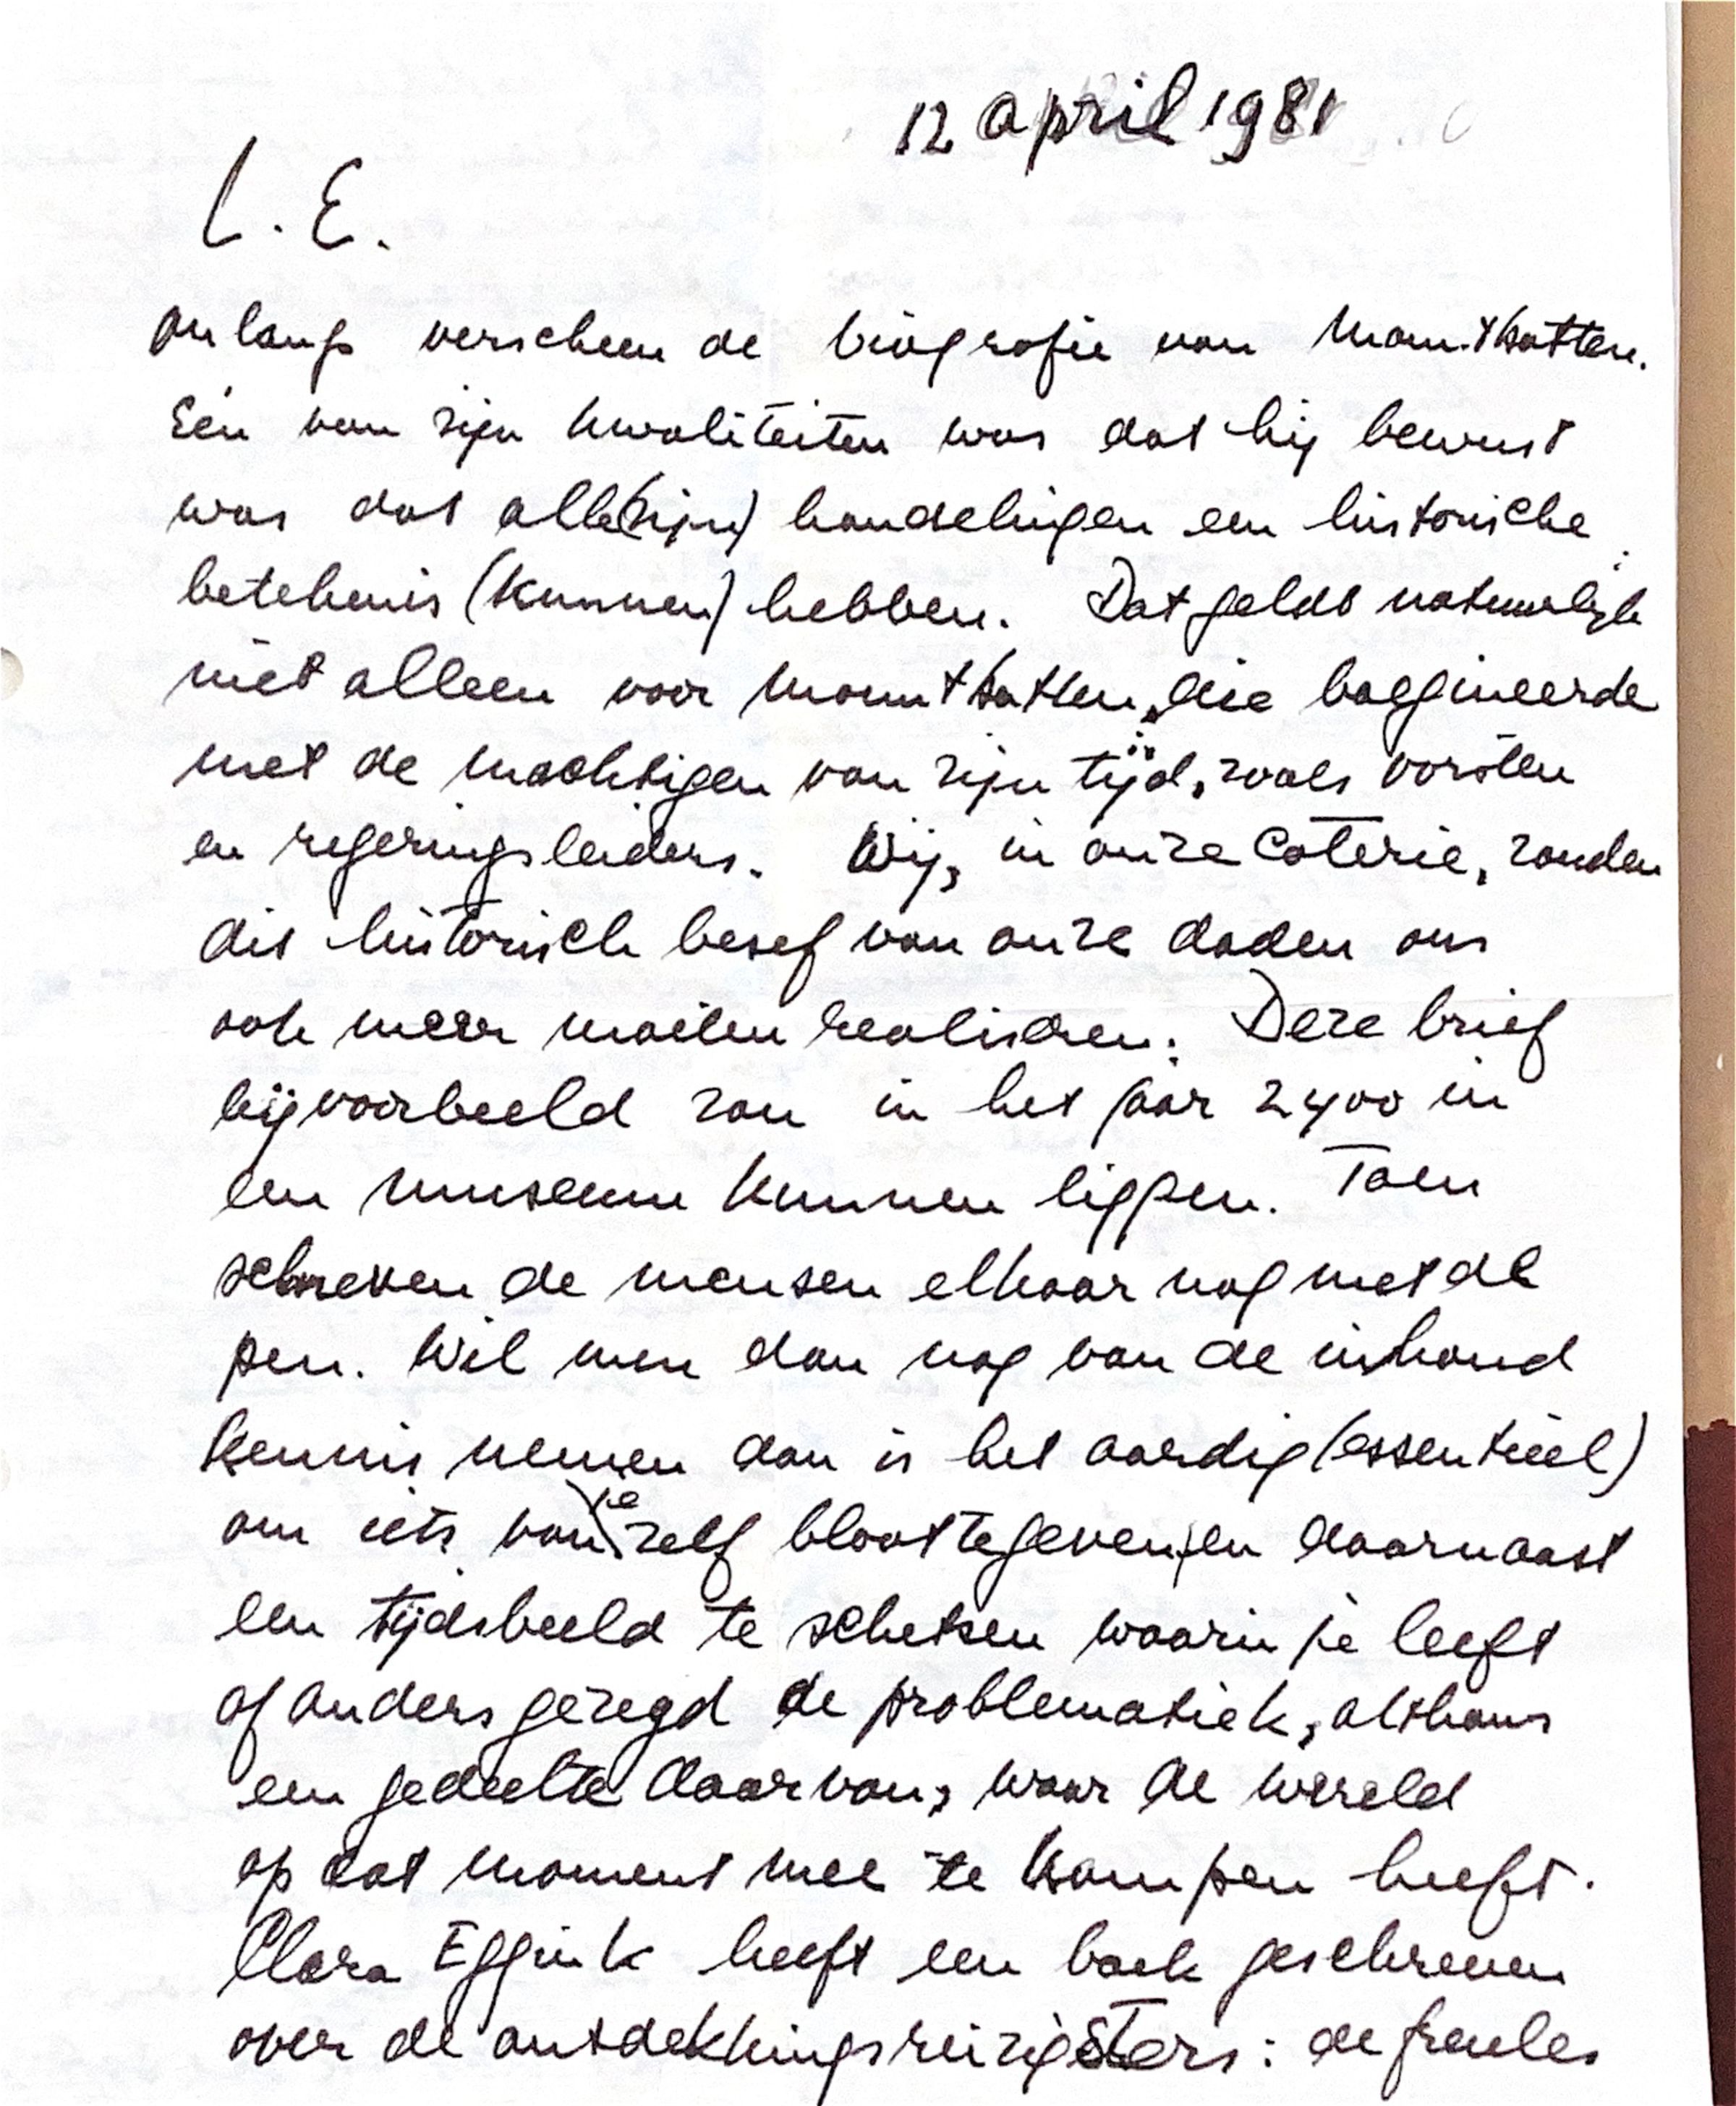 12 april 1981
L. E.
onlangs verscheen de biografie van Mountbatten.
Eén van zijn kwaliteiten was dat hij bewust
was dat alle (zijn) handelingen een historische
betekenis (kunnen) hebben. Dat geldt natuurlijk
niet alleen voor Mountbatten, die bagineerde
met de machtigen van zijn tijd, zoals vorsten
en regeringsleiders. Wij, in onze coterie, zouden
dit historisch besef van onze daden ons
ook meer moeten realiseren. Deze brief
bijvoorbeeld zou in het jaar 2400 in
een museum kunnen liggen. Toen
schreven de mensen elkaar nog met de
pen. Wil men dan nog van de inhoud
kennis nemen dan is het aardig (essentieel)
om iets van je zelf bloot te geven, en daarnaast
een tijdsbeeld te schetsen waarin je leeft
of anders gezegd de problematiek, althans
een gedeelte daarvan, waar de wereld
op dat moment mee te kampen heeft.
Clara Eggink heeft een boek geschreven
over de ontdekkingsreizigsters: de freules